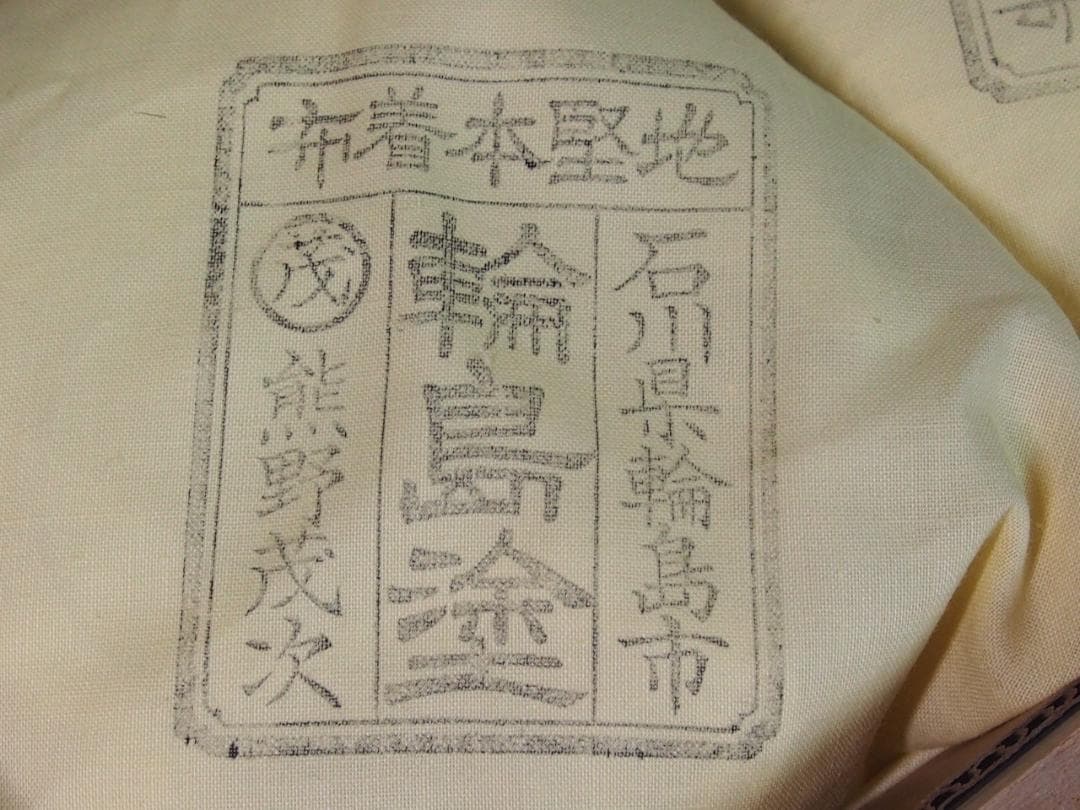 布着本堅地
石川県輪島市
輪島塗
茂
熊野茂次